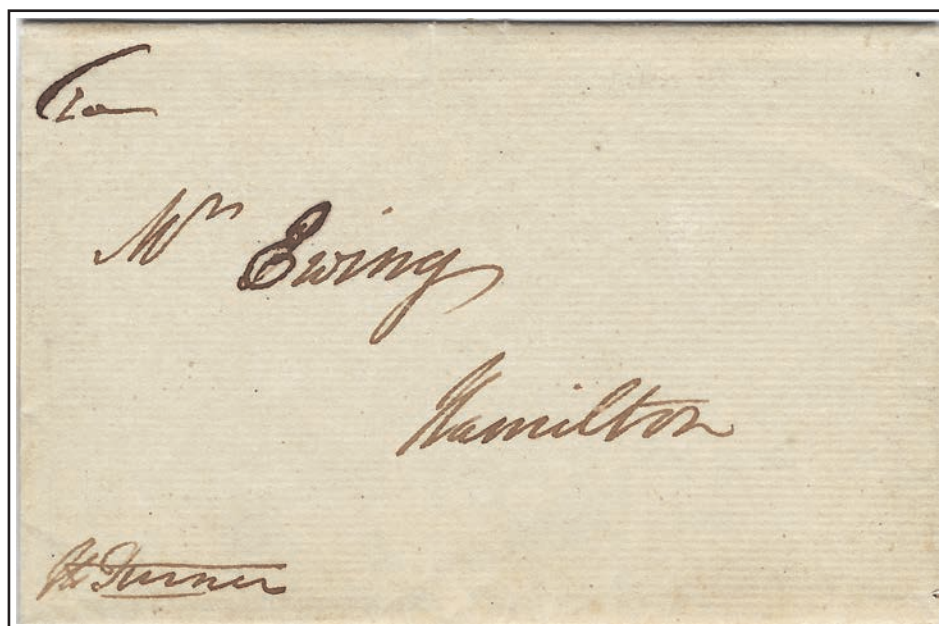 To
Mr Ewing
Hamilton
Turner